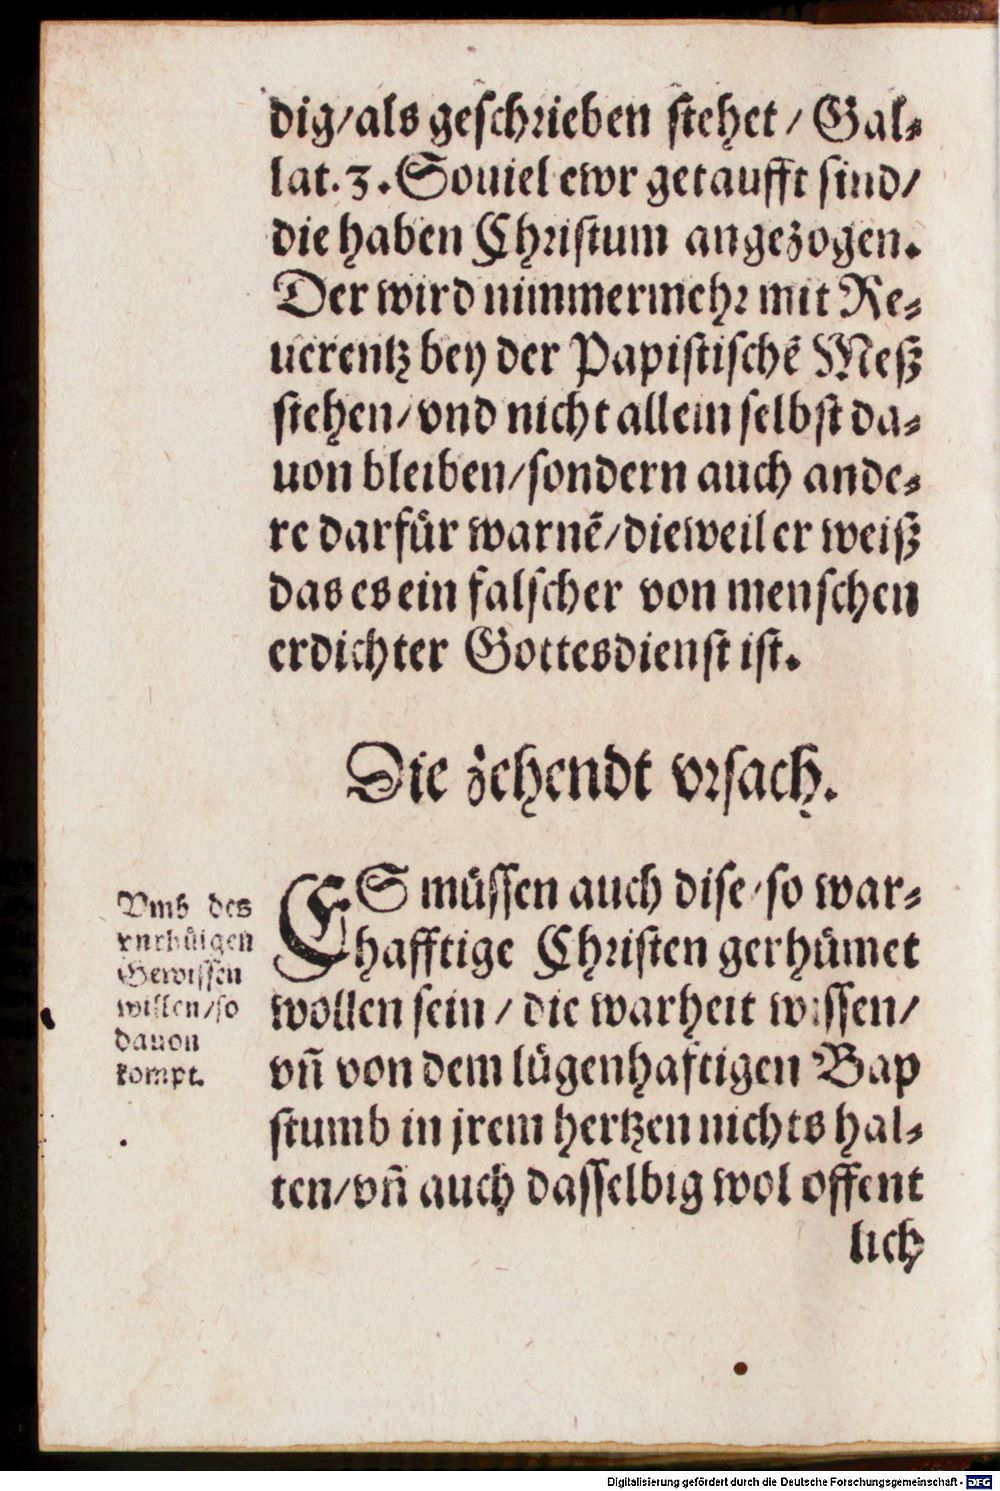 dig/als geschrieben stehet / Gal⸗
lat. 3. Souiel ewr getaufft sind/
die haben Christum angezogen.
Der wird nimmermehr mit Re⸗
uerentz bey der Papistischē Meß
stehen/vnd nicht allein selbst da⸗
uon bleiben/sondern auch ande⸗
re darfür warnē/dieweil er weiß
das es ein falscher von menschen
erdichter Gottesdienst ist.
Die zehendt vrsach.
Vmb des
vnrhüigen
Gewissen
willen/so
dauon
kompt.
ES müssen auch dise/so war⸗
hafftige Christen gerhümet
wollen sein / die warheit wissen/
vñ von dem lügenhaftigen Bap
stumb in jrem hertzen nichts hal⸗
ten/vñ auch dasselbig wol offent
lich
Digitalisierung gefördert durch die Deutsche Forschungsgemeinschaft - DFG